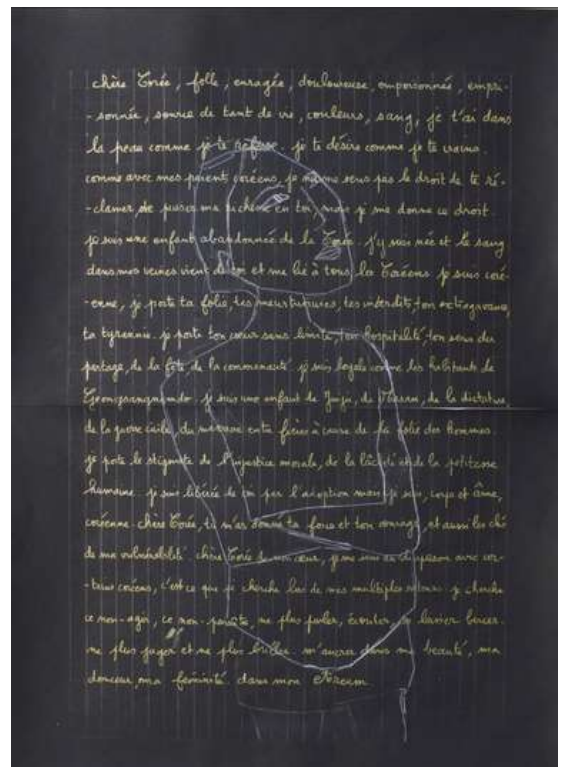 chère Corée, folle, enragée, douloureuse, empoisonnée, empri-
-sonnée, source de tant de vie, couleurs, sang, je t'ai dans
la peau comme je te refuse. je te désire comme je te crains.
comme avec mes parents coréens, je ne me sens pas le droit de te ré-
-clamer, de puiser ma richesse en toi, mais je me donne ce droit.
je suis une enfant abandonnée de la Corée. j'y suis née et le sang
dans mes veines vient de toi et me lie à tous les Coréens. je suis coré-
-enne, je porte ta folie, tes meurtrissures, tes interdits, ton extravagance,
ta tyrannie. je porte ton cœur sans limite, ton hospitalité, ton sens du
partage, de la fête, de la communauté. je suis loyale comme les habitants de
je suis une enfant de Juju, de de la dictature,
de la guerre civile, du massacre entre frères à cause de la folie des hommes.
je porte le stigmate de l'injustice morale, de la lâcheté et de la petitesse
humaine. je suis libérée de toi par l'adoption mais je suis, corps et âme,
coréenne. chère Corée, tu m'as donné ta force et ton courage, et aussi les clés
de ma vulnérabilité. chère Corée de mon cœur, je me suis en diapason avec cer-
-tains coréens, c'est ce que je cherche lors de mes multiples retours. je cherche
ce non-agir, ce non-paraître, ne plus parler, écouter, me laisser bercer.
ne plus juger et ne plus briller. m'ancrer dans ma beauté, ma
douceur, ma féminité. dans mon